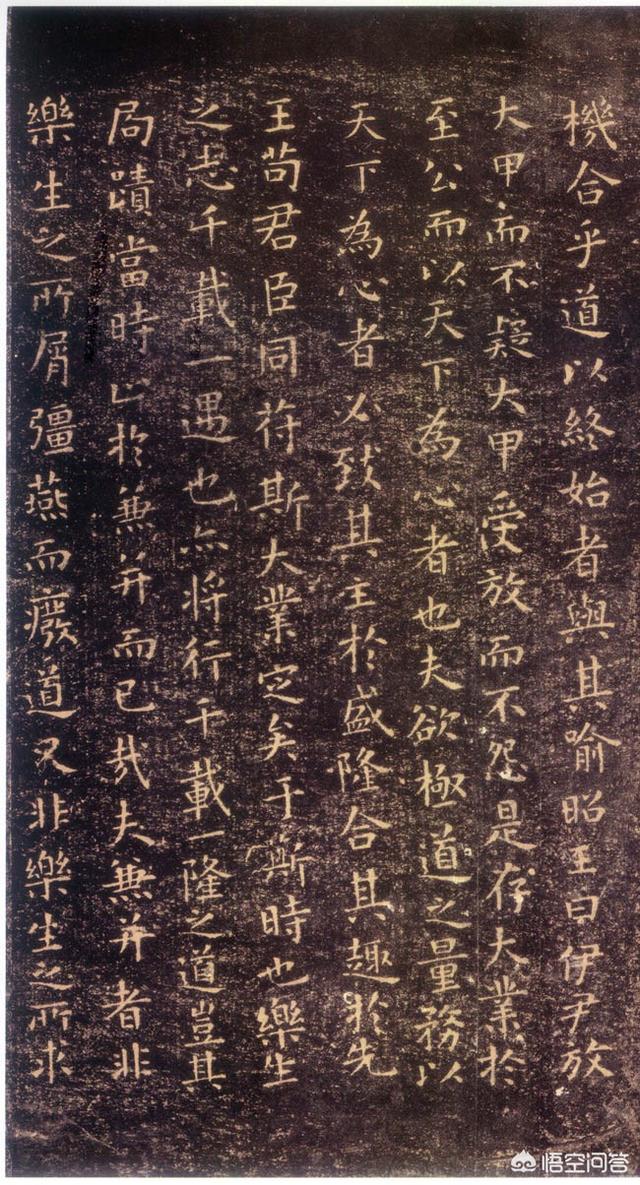 機合乎道以終始者與其喻昭王曰伊尹放
大甲而不疑大甲受放而不怨是存大業於
至公而以天下為心者也夫欲極道之量務以
天下為心者必致其主於盛隆合其趣於先
王苟君臣同符斯大業定矣于斯時也樂生
之志千載一遇也亦將行千載一隆之道豈其
局蹟當時止於兼并而已哉夫兼并者非
樂生之所屑彊燕而廢道又非樂生之所求
悟空问答